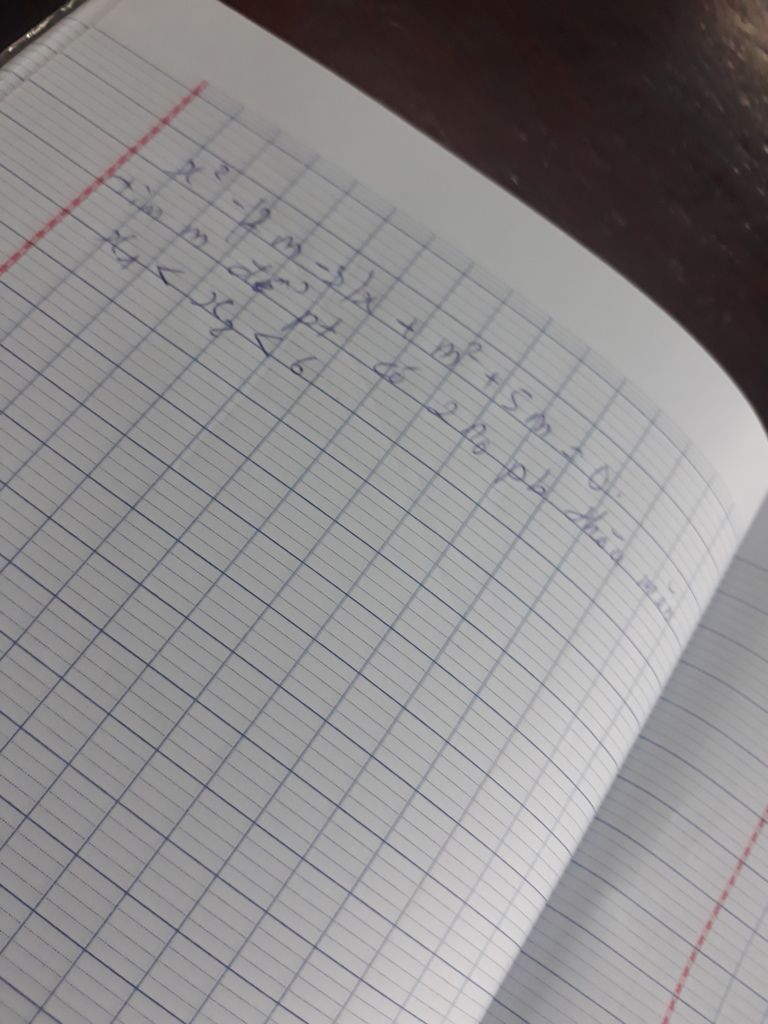 x² - (2m - 3)x + m² + 5m = 0.
tìm m để pt có 2 no pb thỏa mãn
x₁ < x₂ < 6